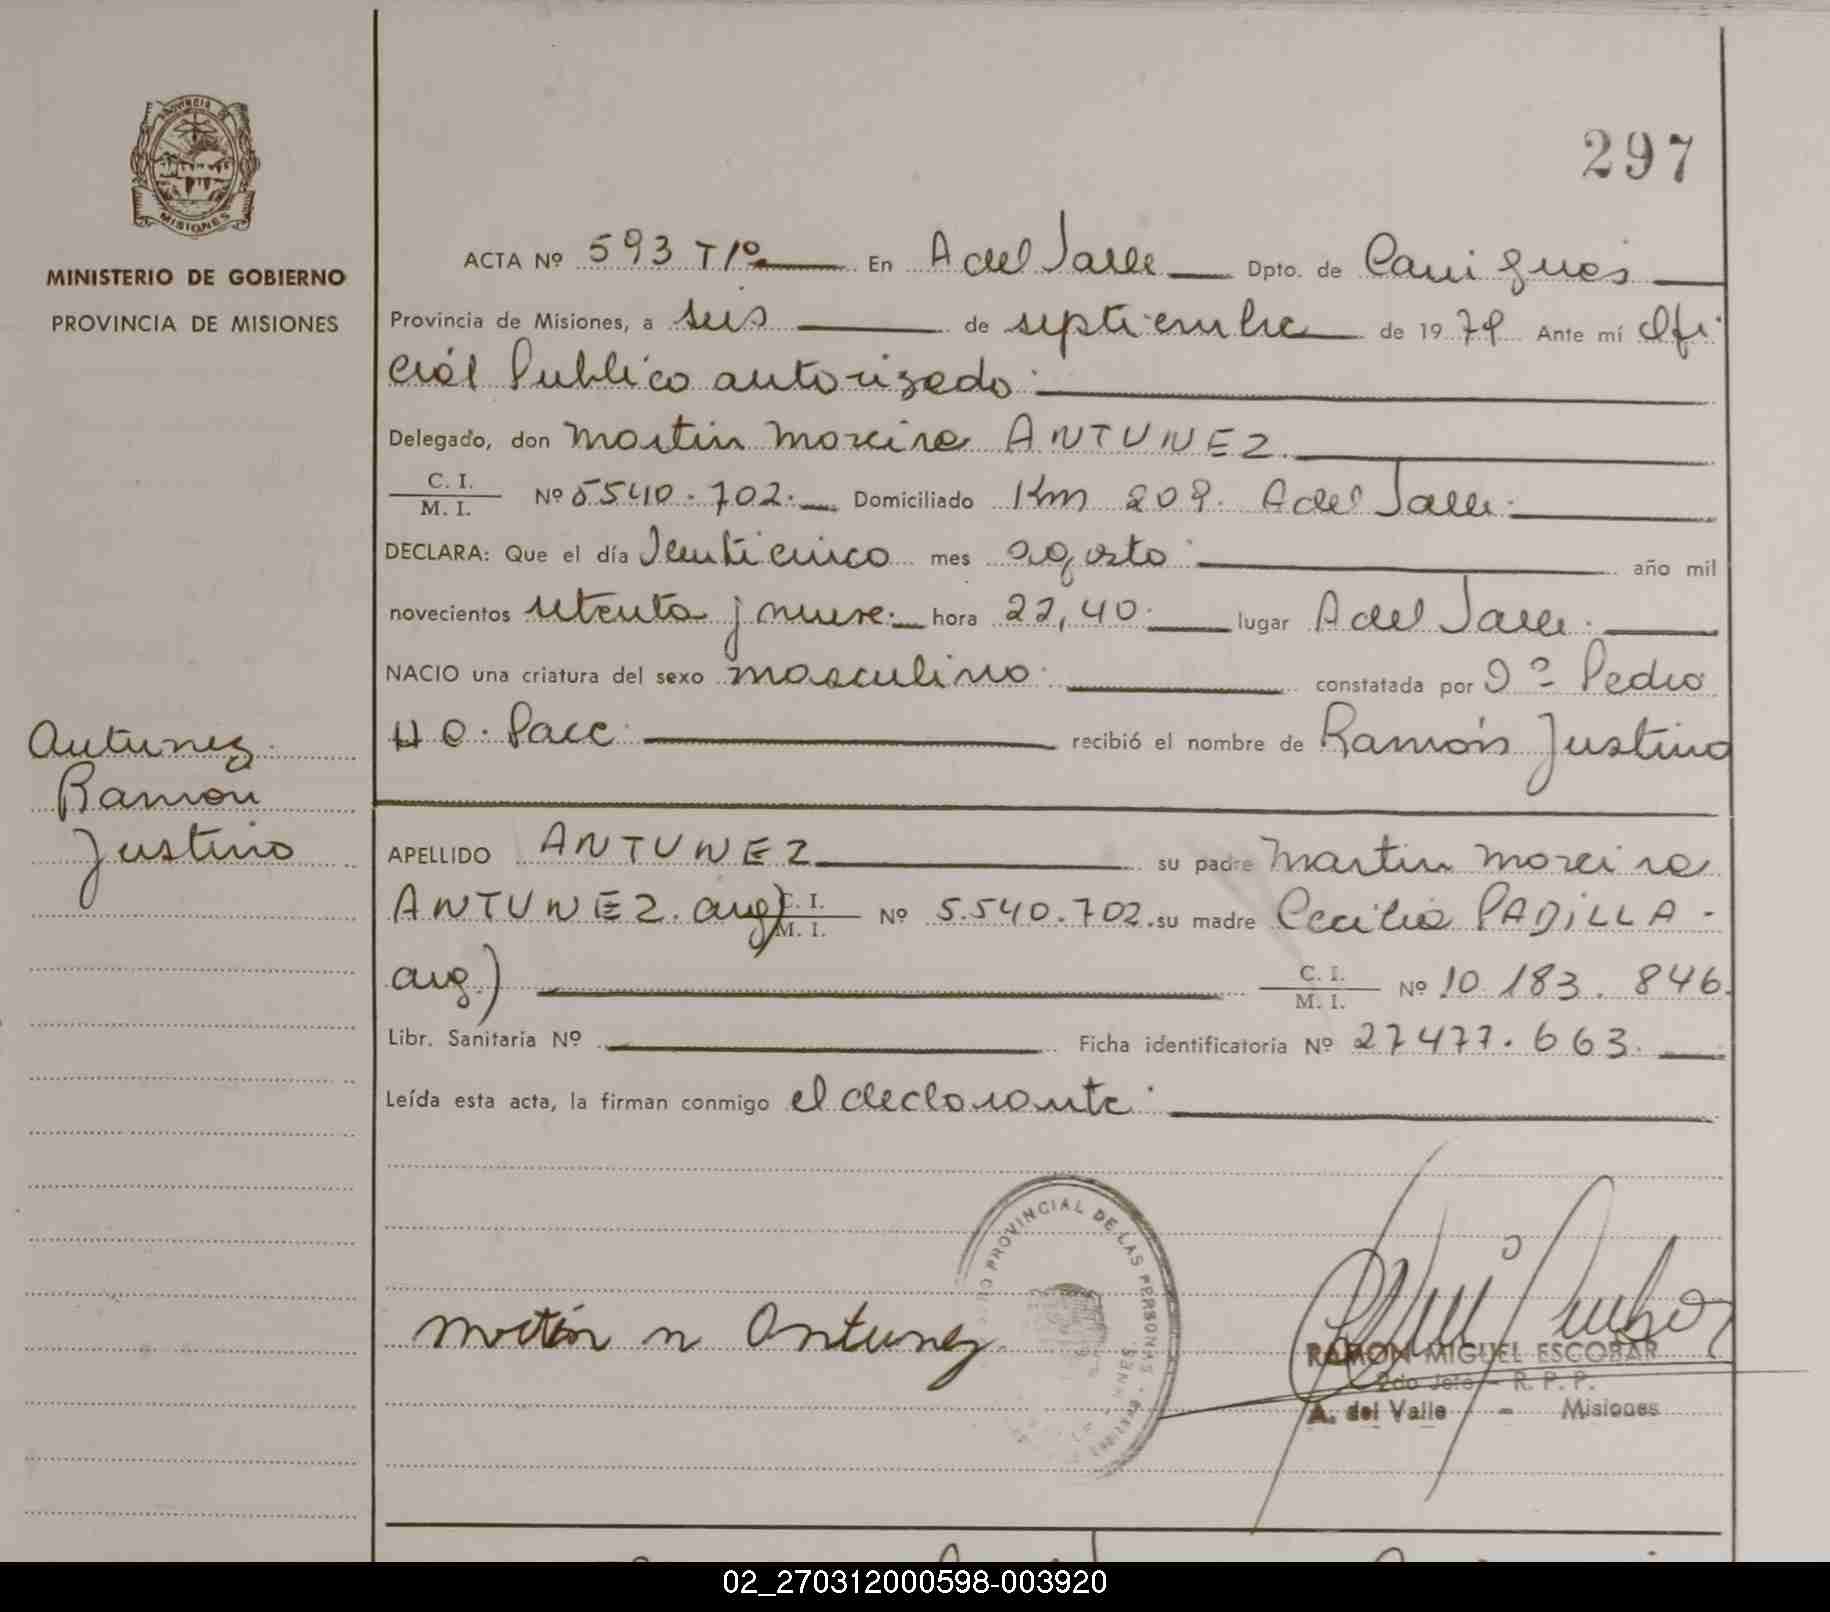 PROVINCIA DE
MISIONES
MINISTERIO DE GOBIERNO
PROVINCIA DE MISIONES
297
ACTA Nº 593 Tº 1º En A del Valle Dpto. de Cainguás
Provincia de Misiones, a seis de septiembre de 1979 Ante mí Ofi-
cial Publico autorizado.
Delegado, don Martin Moreira ANTUNEZ.
C. I.
M. I. Nº 5540.702. Domiciliado Km 209. A del Valle.
DECLARA: Que el día Venticinco mes agosto. año mil
novecientos setenta y nueve. hora 22,40. lugar A del Valle.
NACIO una criatura del sexo masculino. constatada por Dº Pedro
recibió el nombre de Ramón Justino
Antunez.
Ramon
Justino
APELLIDO ANTUNEZ su padre Martin Moreira
ANTUNEZ. arg) C. I. M. I. Nº 5.540.702. su madre Cecilia PADILLA -
arg.) C. I. M. I. Nº 10 183. 846.
Libr. Sanitaria Nº Ficha identificatoria Nº 27477.663.
Leída esta acta, la firman conmigo el declarante.
PROVINCIAL DE LAS PERSONAS
Martin M Antunez
RAMON MIGUEL ESCOBAR
2do Jefe - R. P. P.
A. del Valle - Misiones
02_270312000598-003920